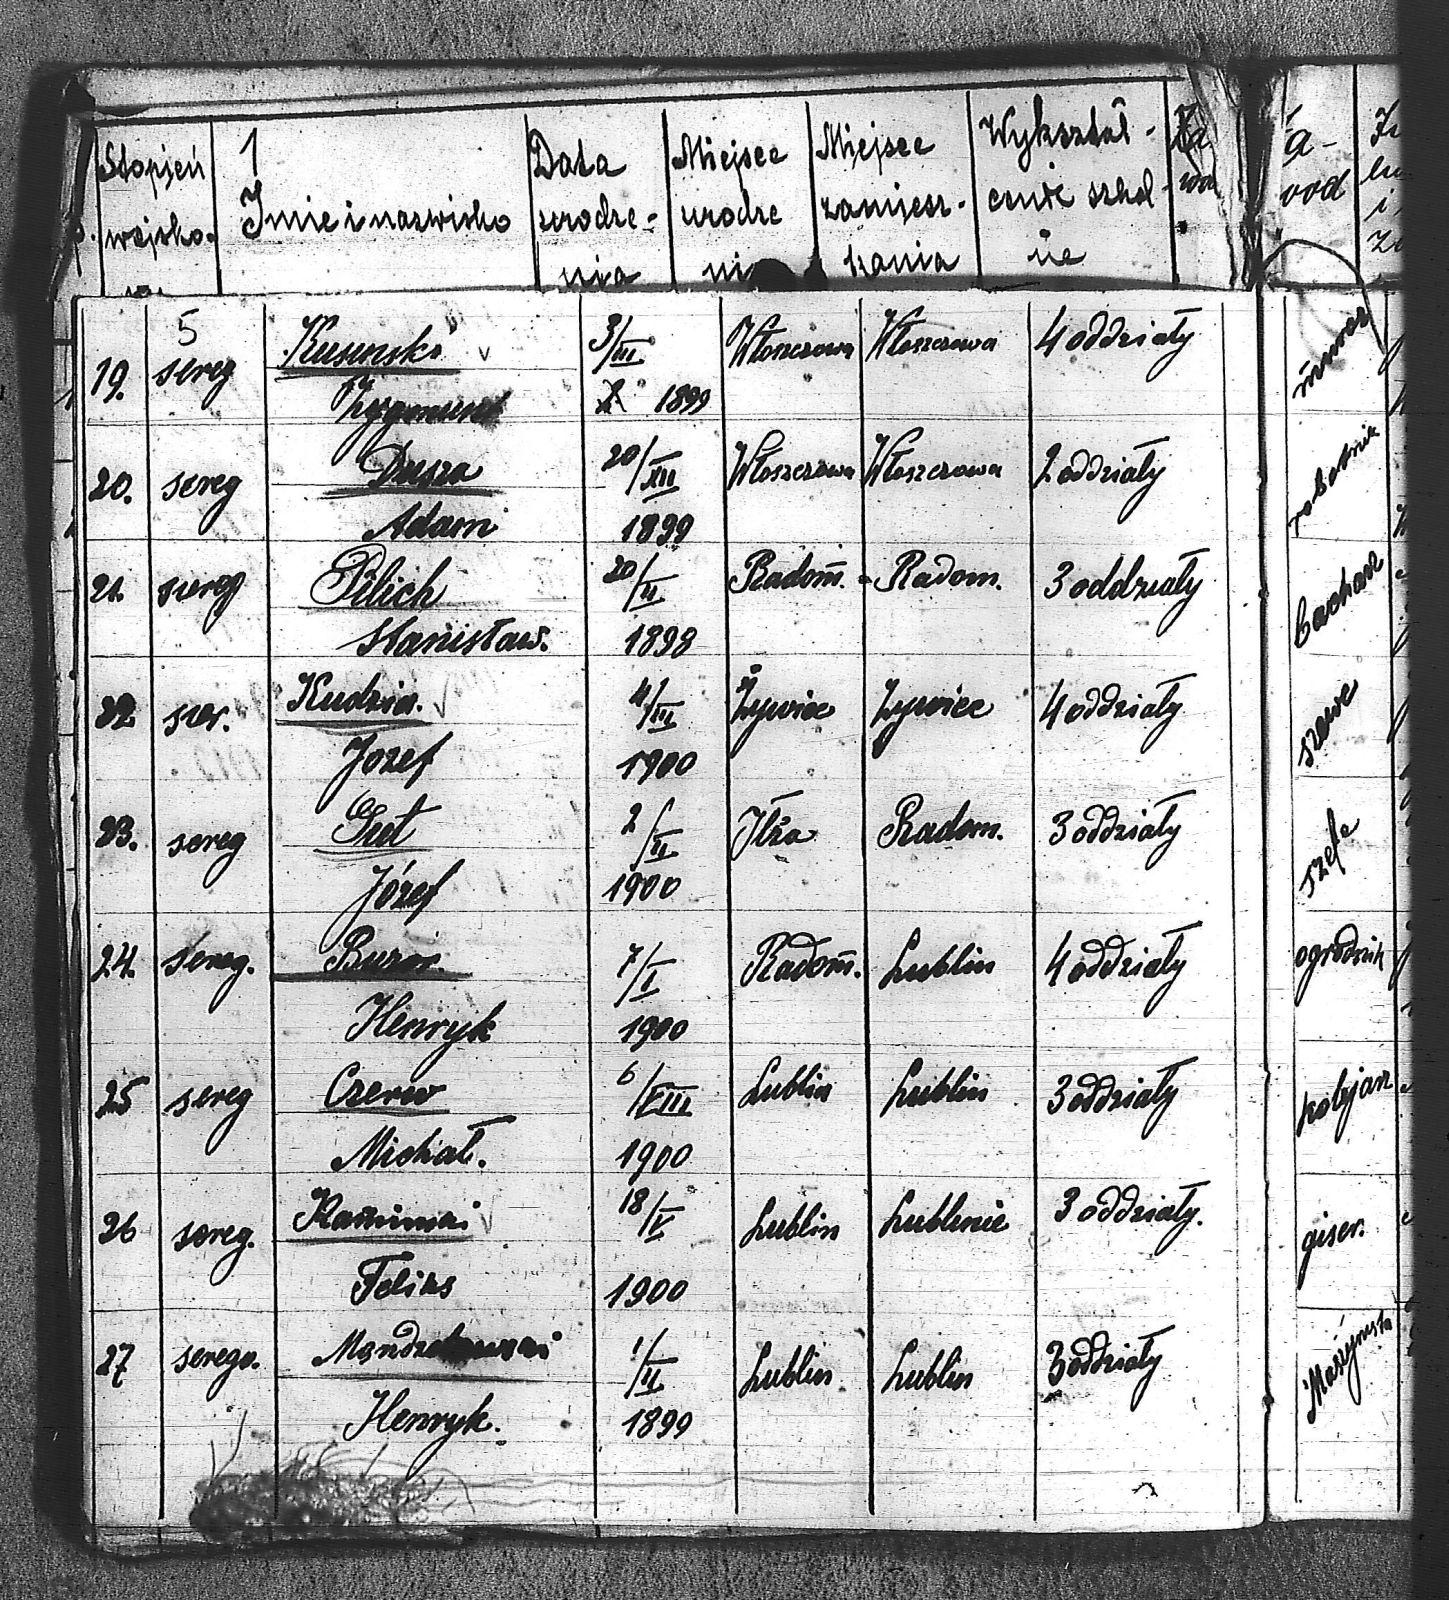 Stopień
1
Data
Miejsce
Miejsce
Wykształ-
wojsko-
Imie i nazwisko
urodze-
urodze
zamiesz-
cenie szkol
nia
ni
kania
ne
Za
wo
a-
vod
5
19. szereg Kusinski 3/III Włoszczowa Włoszczowa 4 oddziały
Zygmunt 1899
20. szereg Dusza 20/XII Włoszczowa Włoszczowa 2 oddziały robotnik
Adam 1899
21. szereg Pilich 20/II Radom. Radom. 3 oddziały
Stanisław. 1898
22. szer. Kudzia. 4/III Żywiec Żywiec 4 oddziały szewc
Jozef 1900
23. szereg Gut 2/II Iłża Radom. 3 oddziały
Józef 1900
24. szereg. 7/I Radom. Lublin 4 oddziały ogrodnik
Henryk 1900
25 szereg Czerw 6/VIII Lublin Lublin 3 oddziały kolejarz
Michał. 1900
26 szereg. Kaminski 18/V Lublin Lublinie 3 oddziały. giser.
Feliks 1900
27 szereg. 1/II Lublin Lublin 3 oddziały
Henryk. 1899